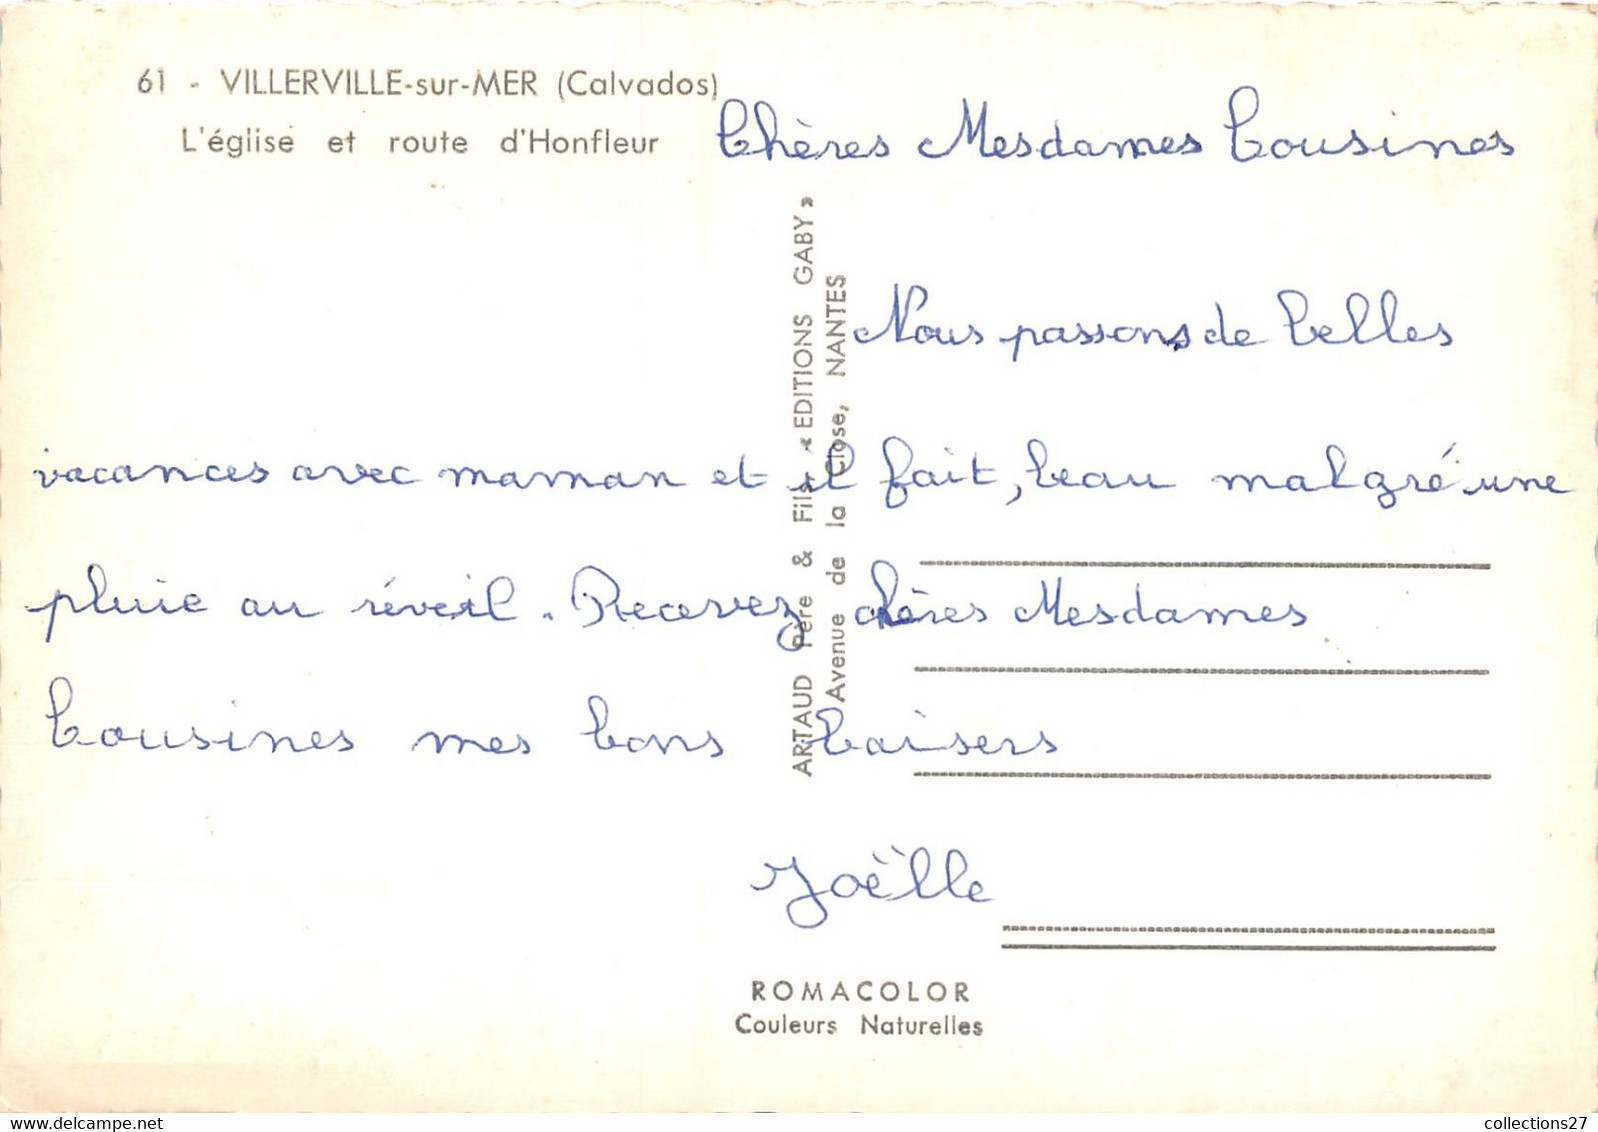 61 - VILLERVILLE-sur-MER (Calvados)
L'église et route d'Honfleur
Chères Mesdames Cousines
Nous passons de belles
vacances avec maman et il fait, beau malgré une
pluie au réveil. Recevez chères Mesdames
Cousines mes bons baisers
Joëlle
ARTAUD Père & Fils « EDITIONS GABY »
Avenue de la Close, NANTES
ROMACOLOR
Couleurs Naturelles
www.delcampe.net
collections27